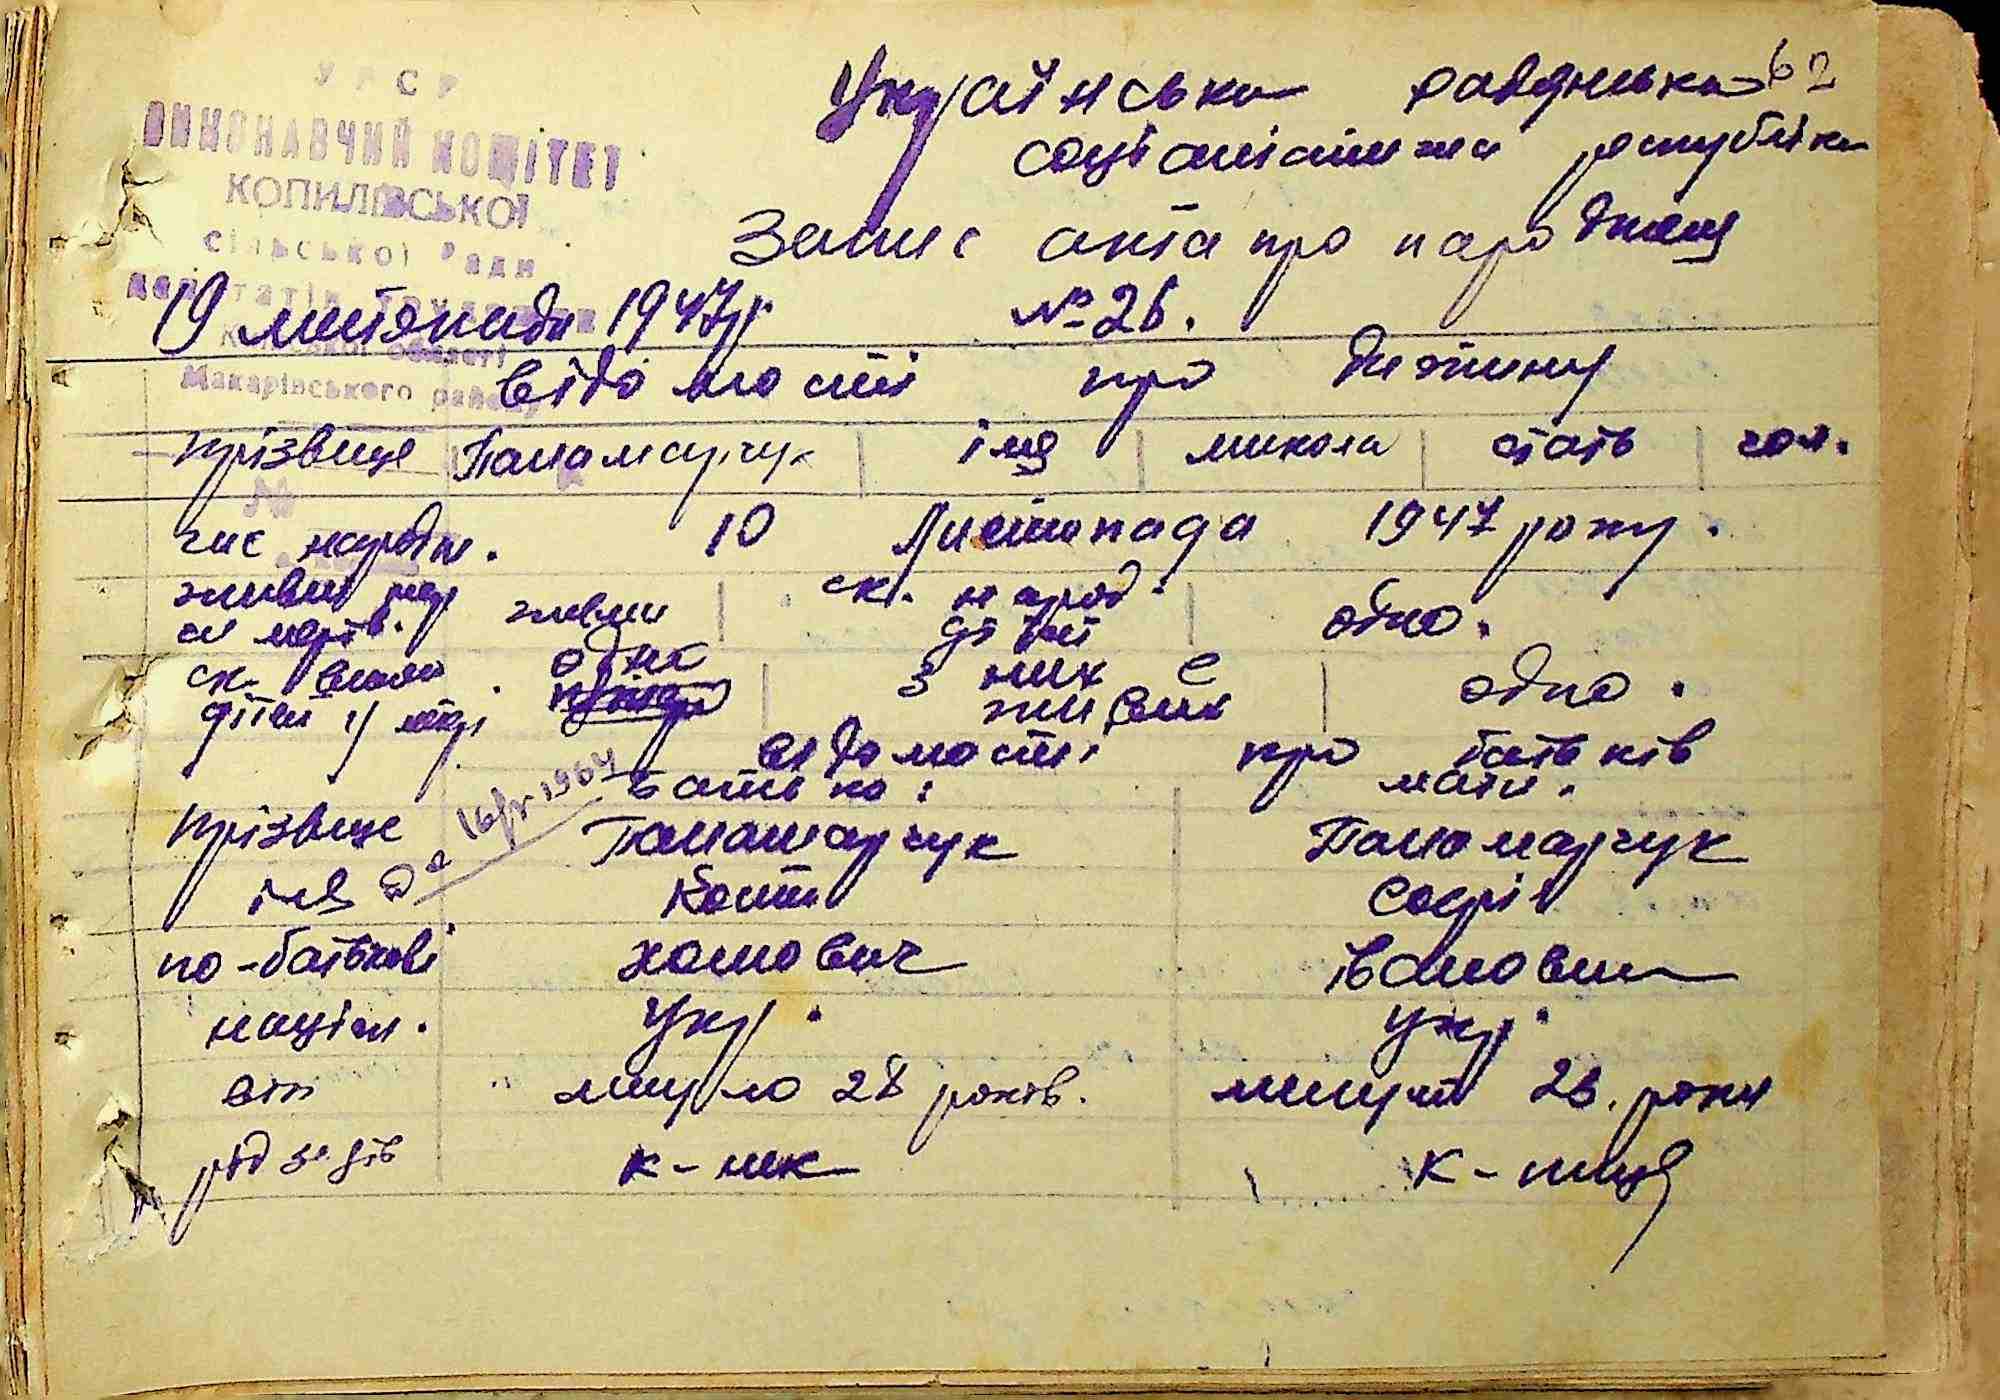 62
УРСР
ВИКОНАВЧИЙ КОМІТЕТ
КОПИЛІВСЬКОЇ
сільської Ради
депутатів трудящих
Київської області
Макарівського району
№
Українська радянська
соціалістична республіка
Запис акта про народження
19 листопада 1947 р. № 26.
Відомості про дитину
прізвище Панамарчук імя микола стать чол.
час народж. 10 Листопада 1947 року.
живим чи мертв. живим ск. народ. дітей одно.
ск. всього дітей у матері одно з них є живих одно.
відомості про батьків
батько: мати.
прізвище Панамарчук Панамарчук
імя Кость Софія
16/IV 1964
по-батькові хомович івановна
націон. Укр. Укр.
вік минуло 28 років. минуло 26. роки
род занять к-ник к-ниця